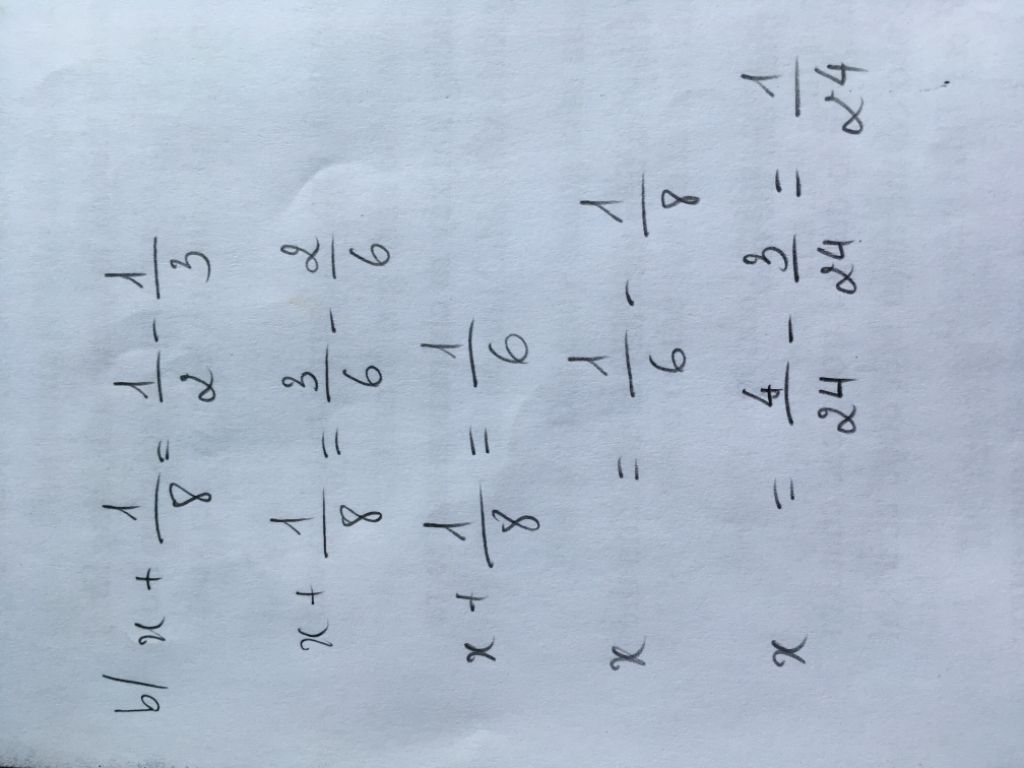 b/ x + 1/8 = 1/2 - 1/3
x + 1/8 = 3/6 - 2/6
x + 1/8 = 1/6
x = 1/6 - 1/8
x = 4/24 - 3/24 = 1/24